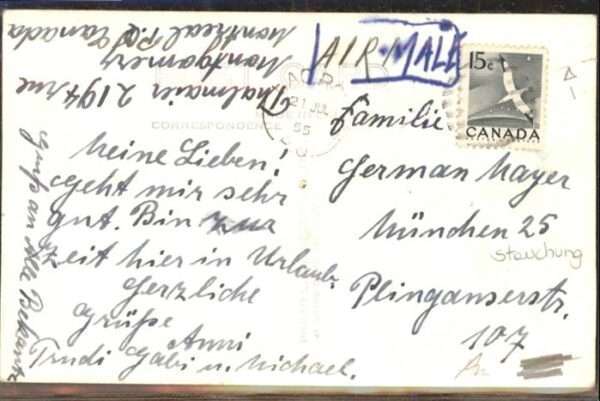 Thalmaier 2194 rue
Montgomery
Montreal P.Q. Canada
AIR-MALE
15c
CANADA
21 JUL
55
CORRESPONDENCE
Meine Lieben!
geht mir sehr
gut. Bin zur
Zeit hier in Urlaub.
Herzliche
Grüße
Anni
Trudi Gabi u. Michael.
Gruß an Alle Bekannte
Familie
German Mayer
München 25
Stauchung
Plinganserstr.
107